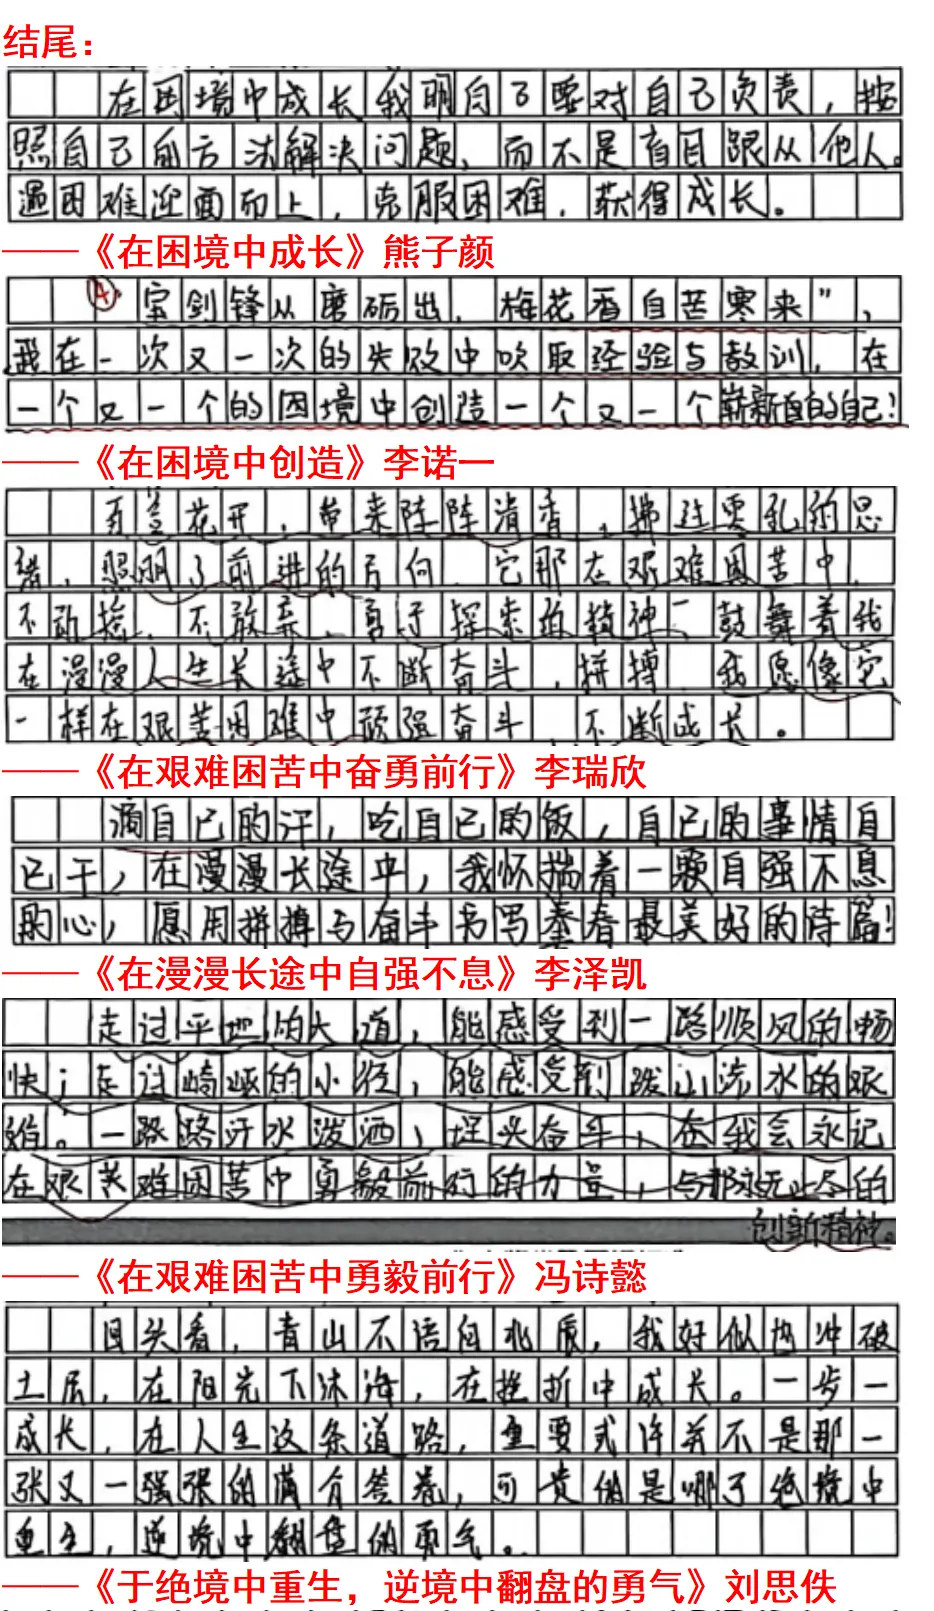 结尾：
在困境中成长我明白了要对自己负责，按
照自己的方法解决问题，而不是盲目跟从他人。
遇困难迎面而上，克服困难，获得成长。
——《在困境中成长》熊子颜
宝剑锋从磨砺出，梅花香自苦寒来”，
我在一次又一次的失败中吹取经验与教训，在
一个又一个的困境中创造一个又一个崭新的自己！
——《在困境中创造》李诺一
花开，带来阵阵清香，拂过零乱的思
绪，照明了前进的方向，它那在艰难困苦中，
不敢抢，不放弃，勇于探索的精神，鼓舞着我
在漫漫人生长途中不断奋斗，拼搏，我愿像它
一样在艰苦困难中顽强奋斗，不断成长。
——《在艰难困苦中奋勇前行》李瑞欣
滴自己的汗，吃自己的饭，自己的事情自
己干，在漫漫长途中，我怀揣着一颗自强不息
的心，愿用拼搏与奋斗书写青春最美好的诗篇！
——《在漫漫长途中自强不息》李泽凯
走过平地的大道，能感受到一路顺风的畅
快；走过崎岖的小径，能感受到跋山流水的艰
难。一路路汗水泼洒，埋头奋斗，在我会永记
在艰苦难困苦中勇毅前行的力量，与那永无止尽的
创新精神。
——《在艰难困苦中勇毅前行》冯诗懿
回头看，青山不语自北辰，我好似也冲破
土层，在阳光下沐海，在挫折中成长。一步一
成长，在人生这条道路，重要或许并不是那一
张又一张张的满分答卷，可贵的是哪了绝境中
重生，逆境中翻盘的勇气。
——《于绝境中重生，逆境中翻盘的勇气》刘思佚